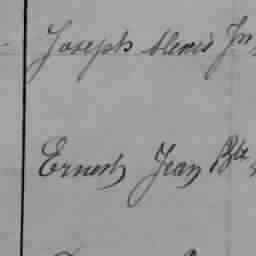 Joseph Clenis Jn
Ernest Jean Bte